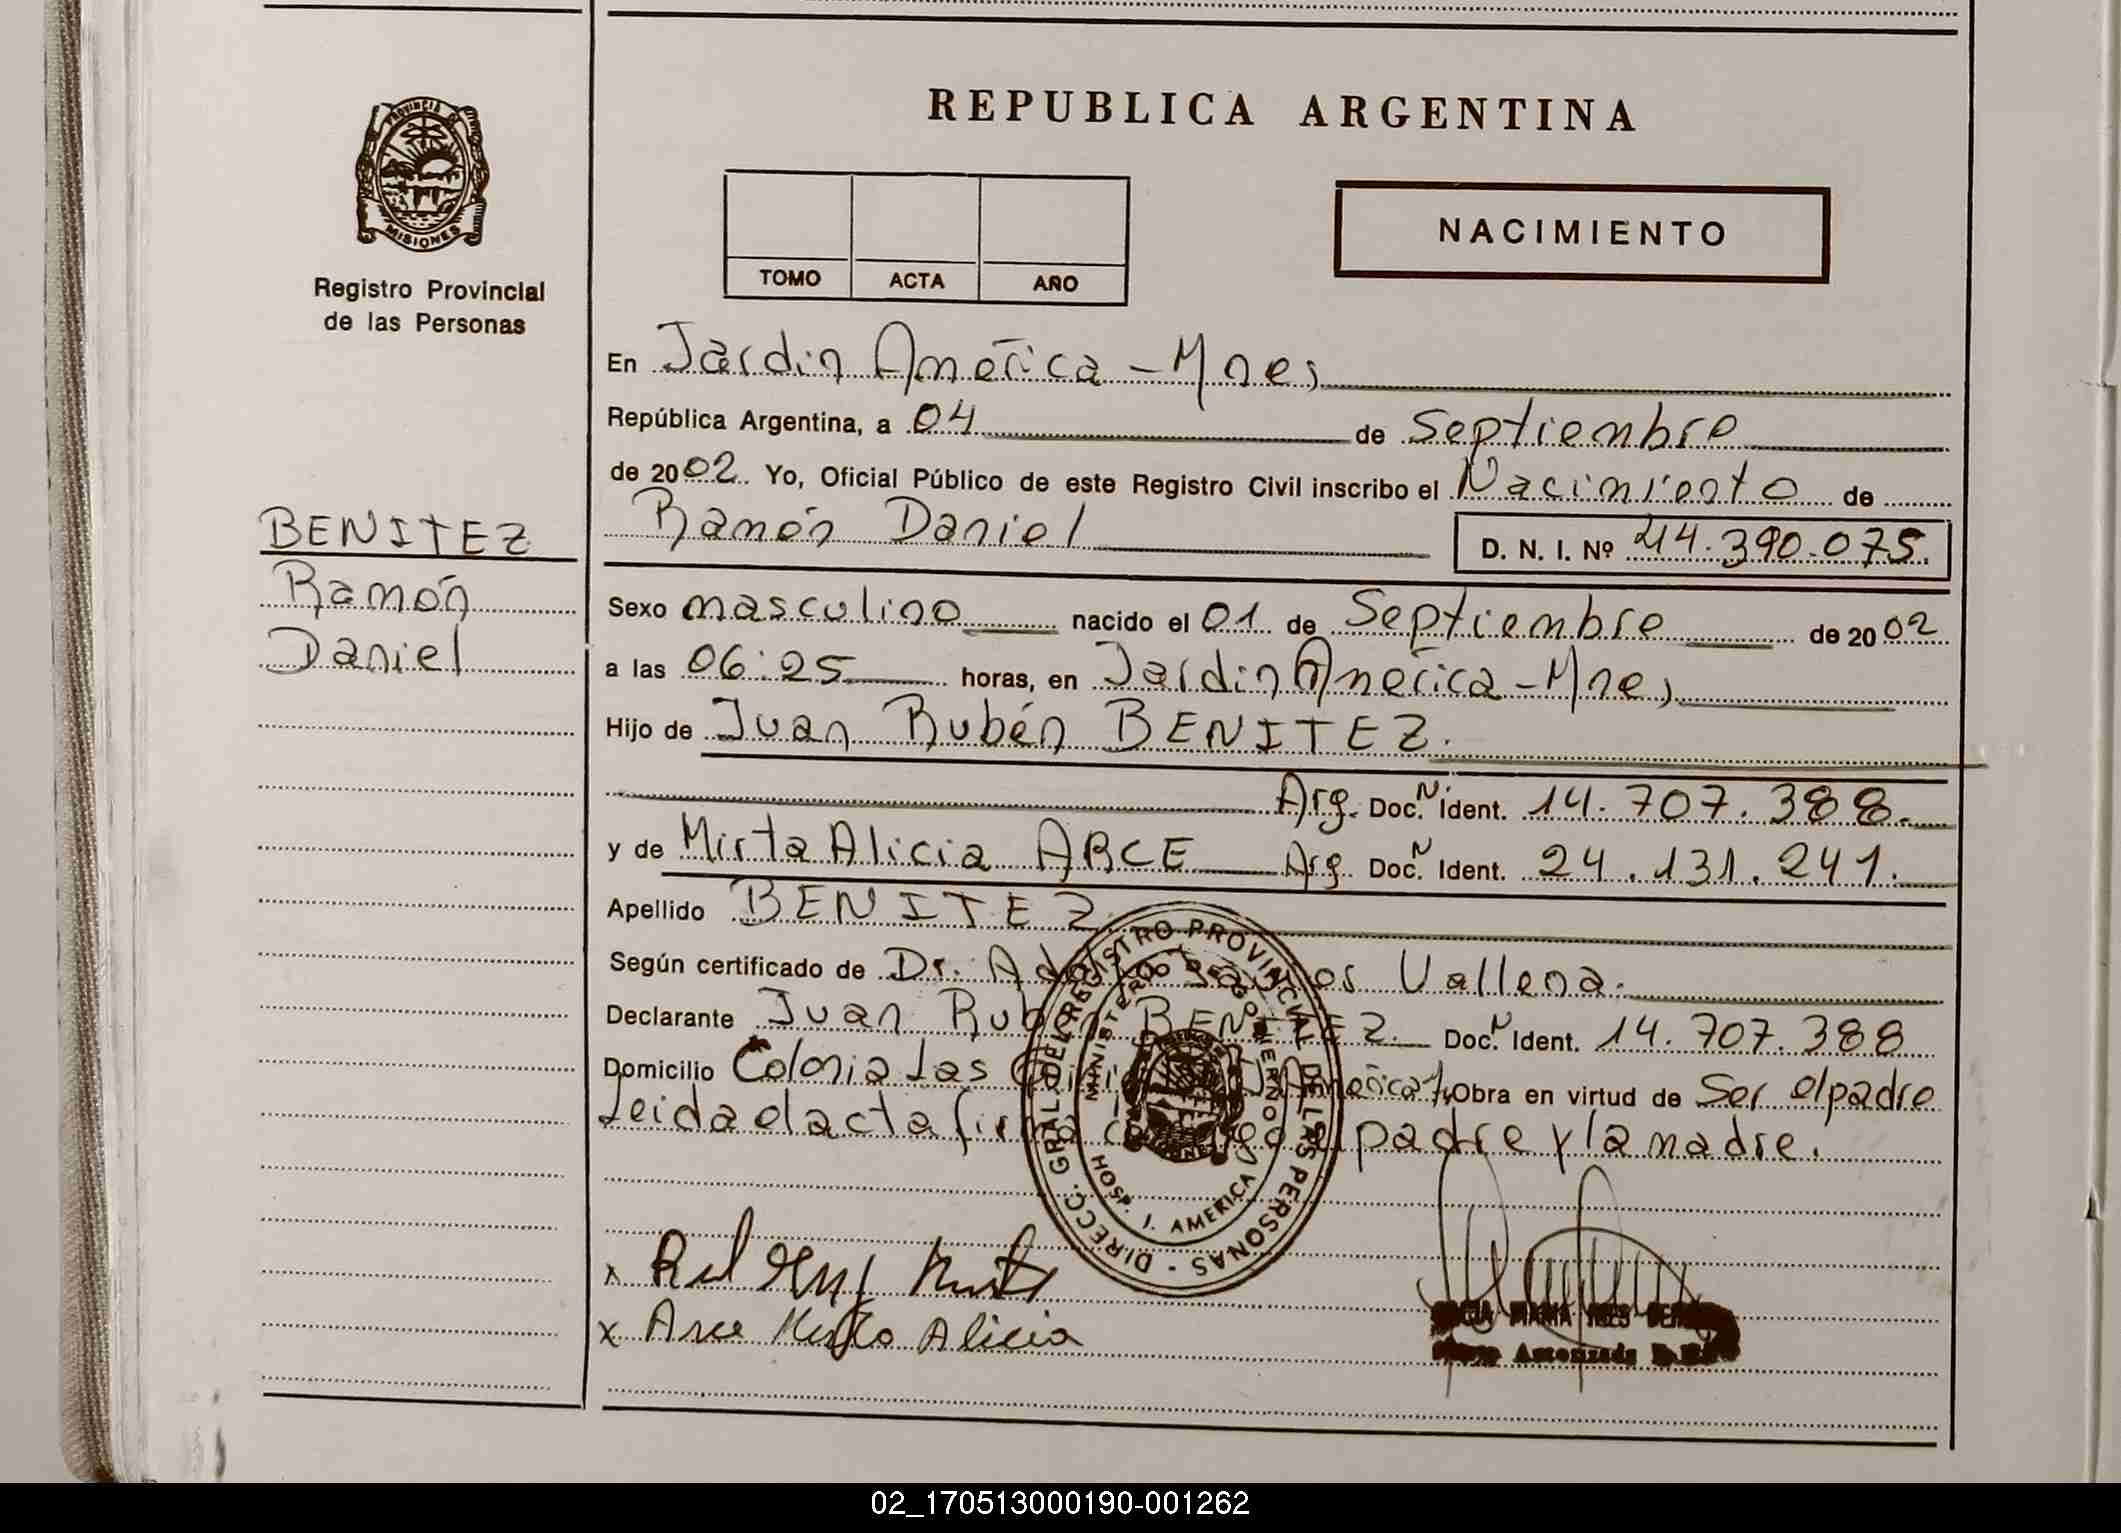 PROVINCIA DE
MISIONES
Registro Provincial
de las Personas
BENITEZ
Ramón
Daniel
REPUBLICA ARGENTINA
TOMO ACTA AÑO
NACIMIENTO
En Jardin América - Mnes,
República Argentina, a 04 de Septiembre
de 2002 Yo, Oficial Público de este Registro Civil inscribo el Nacimiento de
Ramón Daniel D. N. I. Nº 44.390.075.
Sexo masculino nacido el 01 de Septiembre de 2002
a las 06:25 horas, en Jardin América - Mnes,
Hijo de Juan Rubén BENITEZ.
Arg. Doc. N Ident. 14.707.388.
y de Mirta Alicia ARCE Arg. Doc. N Ident. 24.131.241.
Apellido BENITEZ
Según certificado de Dr. Vallena.
Declarante Juan Rubén BENITEZ. Doc. N Ident. 14.707.388
Domicilio Colonia Las América, Obra en virtud de Ser el padre
Leida el acta firma conmigo el padre y la madre.
DIRECC. GRAL. DEL REGISTRO PROVINCIAL DE LAS PERSONAS -
MINISTERIO DE GOBIERNO
HOSP. J. AMERICA
x
x Arce Mirta Alicia
Autorizada
02_170513000190-001262